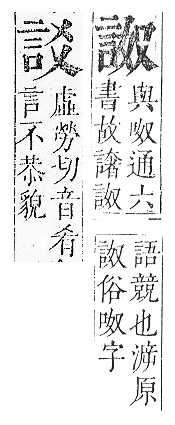 詉
與呶通六
書故譊詉
語競也泝原
詉俗呶字
訤
虛勞切音肴
言不恭貌